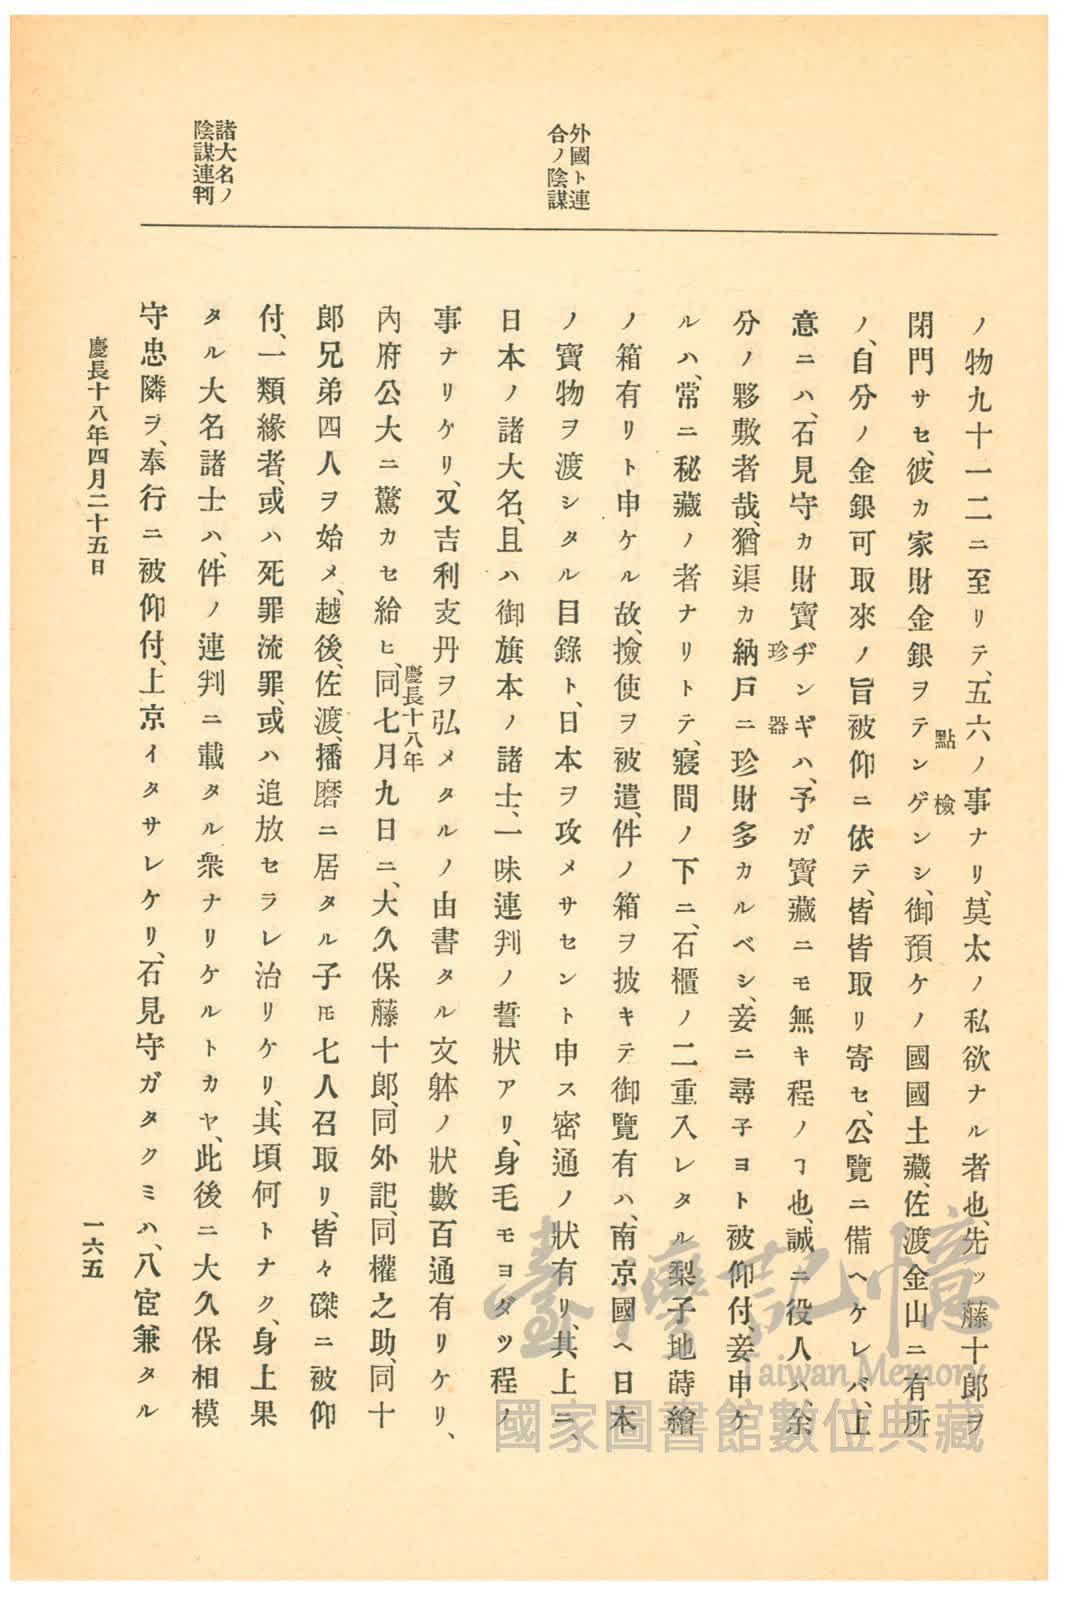 外國ト連
合ノ陰謀
諸大名ノ
陰謀連判
ノ物九十一二ニ至リテ、五六ノ事ナリ、莫太ノ私欲ナル者也、先ッ藤十郎ヲ
閉門サセ、彼カ家財金銀ヲテンゲンシ、御預ケノ國國土藏、佐渡金山ニ有所
點檢
ノ、自分ノ金銀可取來ノ旨被仰ニ依テ、皆皆取リ寄セ、公覽ニ備ヘケレバ、上
意ニハ、石見守カ財寶ヂンギハ、予ガ寶藏ニモ無キ程ノヿ也、誠ニ役人ハ、余
珍器
分ノ夥敷者哉、猶渠カ納戸ニ珍財多カルベシ、妾ニ尋子ヨト被仰付、妾申ケ
ルハ、常ニ秘藏ノ者ナリトテ、寢間ノ下ニ、石櫃ノ二重入レタル梨子地蒔繪
ノ箱有リト申ケル故、撿使ヲ被遣、件ノ箱ヲ披キテ御覽有ハ、南京國ヘ日本
ノ寶物ヲ渡シタル目錄ト、日本ヲ攻メサセント申ス密通ノ狀有リ、其上ニ、
日本ノ諸大名、且ハ御旗本ノ諸士、一味連判ノ誓狀アリ、身毛モヨダツ程ノ
事ナリケリ、又吉利支丹ヲ弘メタルノ由書タル文躰ノ狀數百通有リケリ、
內府公大ニ驚カセ給ヒ、同七月九日ニ、大久保藤十郎、同外記、同權之助、同十
慶長十八年
郎兄弟四人ヲ始メ、越後、佐渡、播磨ニ居タル子𪜈七人召取リ、皆々磔ニ被仰
付、一類緣者、或ハ死罪流罪、或ハ追放セラレ治リケリ、其頃何トナク、身上果
タル大名諸士ハ、件ノ連判ニ載タル衆ナリケルトカヤ、此後ニ大久保相模
守忠隣ヲ、奉行ニ被仰付、上京イタサレケリ、石見守ガタクミハ、八宦兼タル
慶長十八年四月二十五日
一六五
臺灣記憶
Taiwan Memory
國家圖書館數位典藏